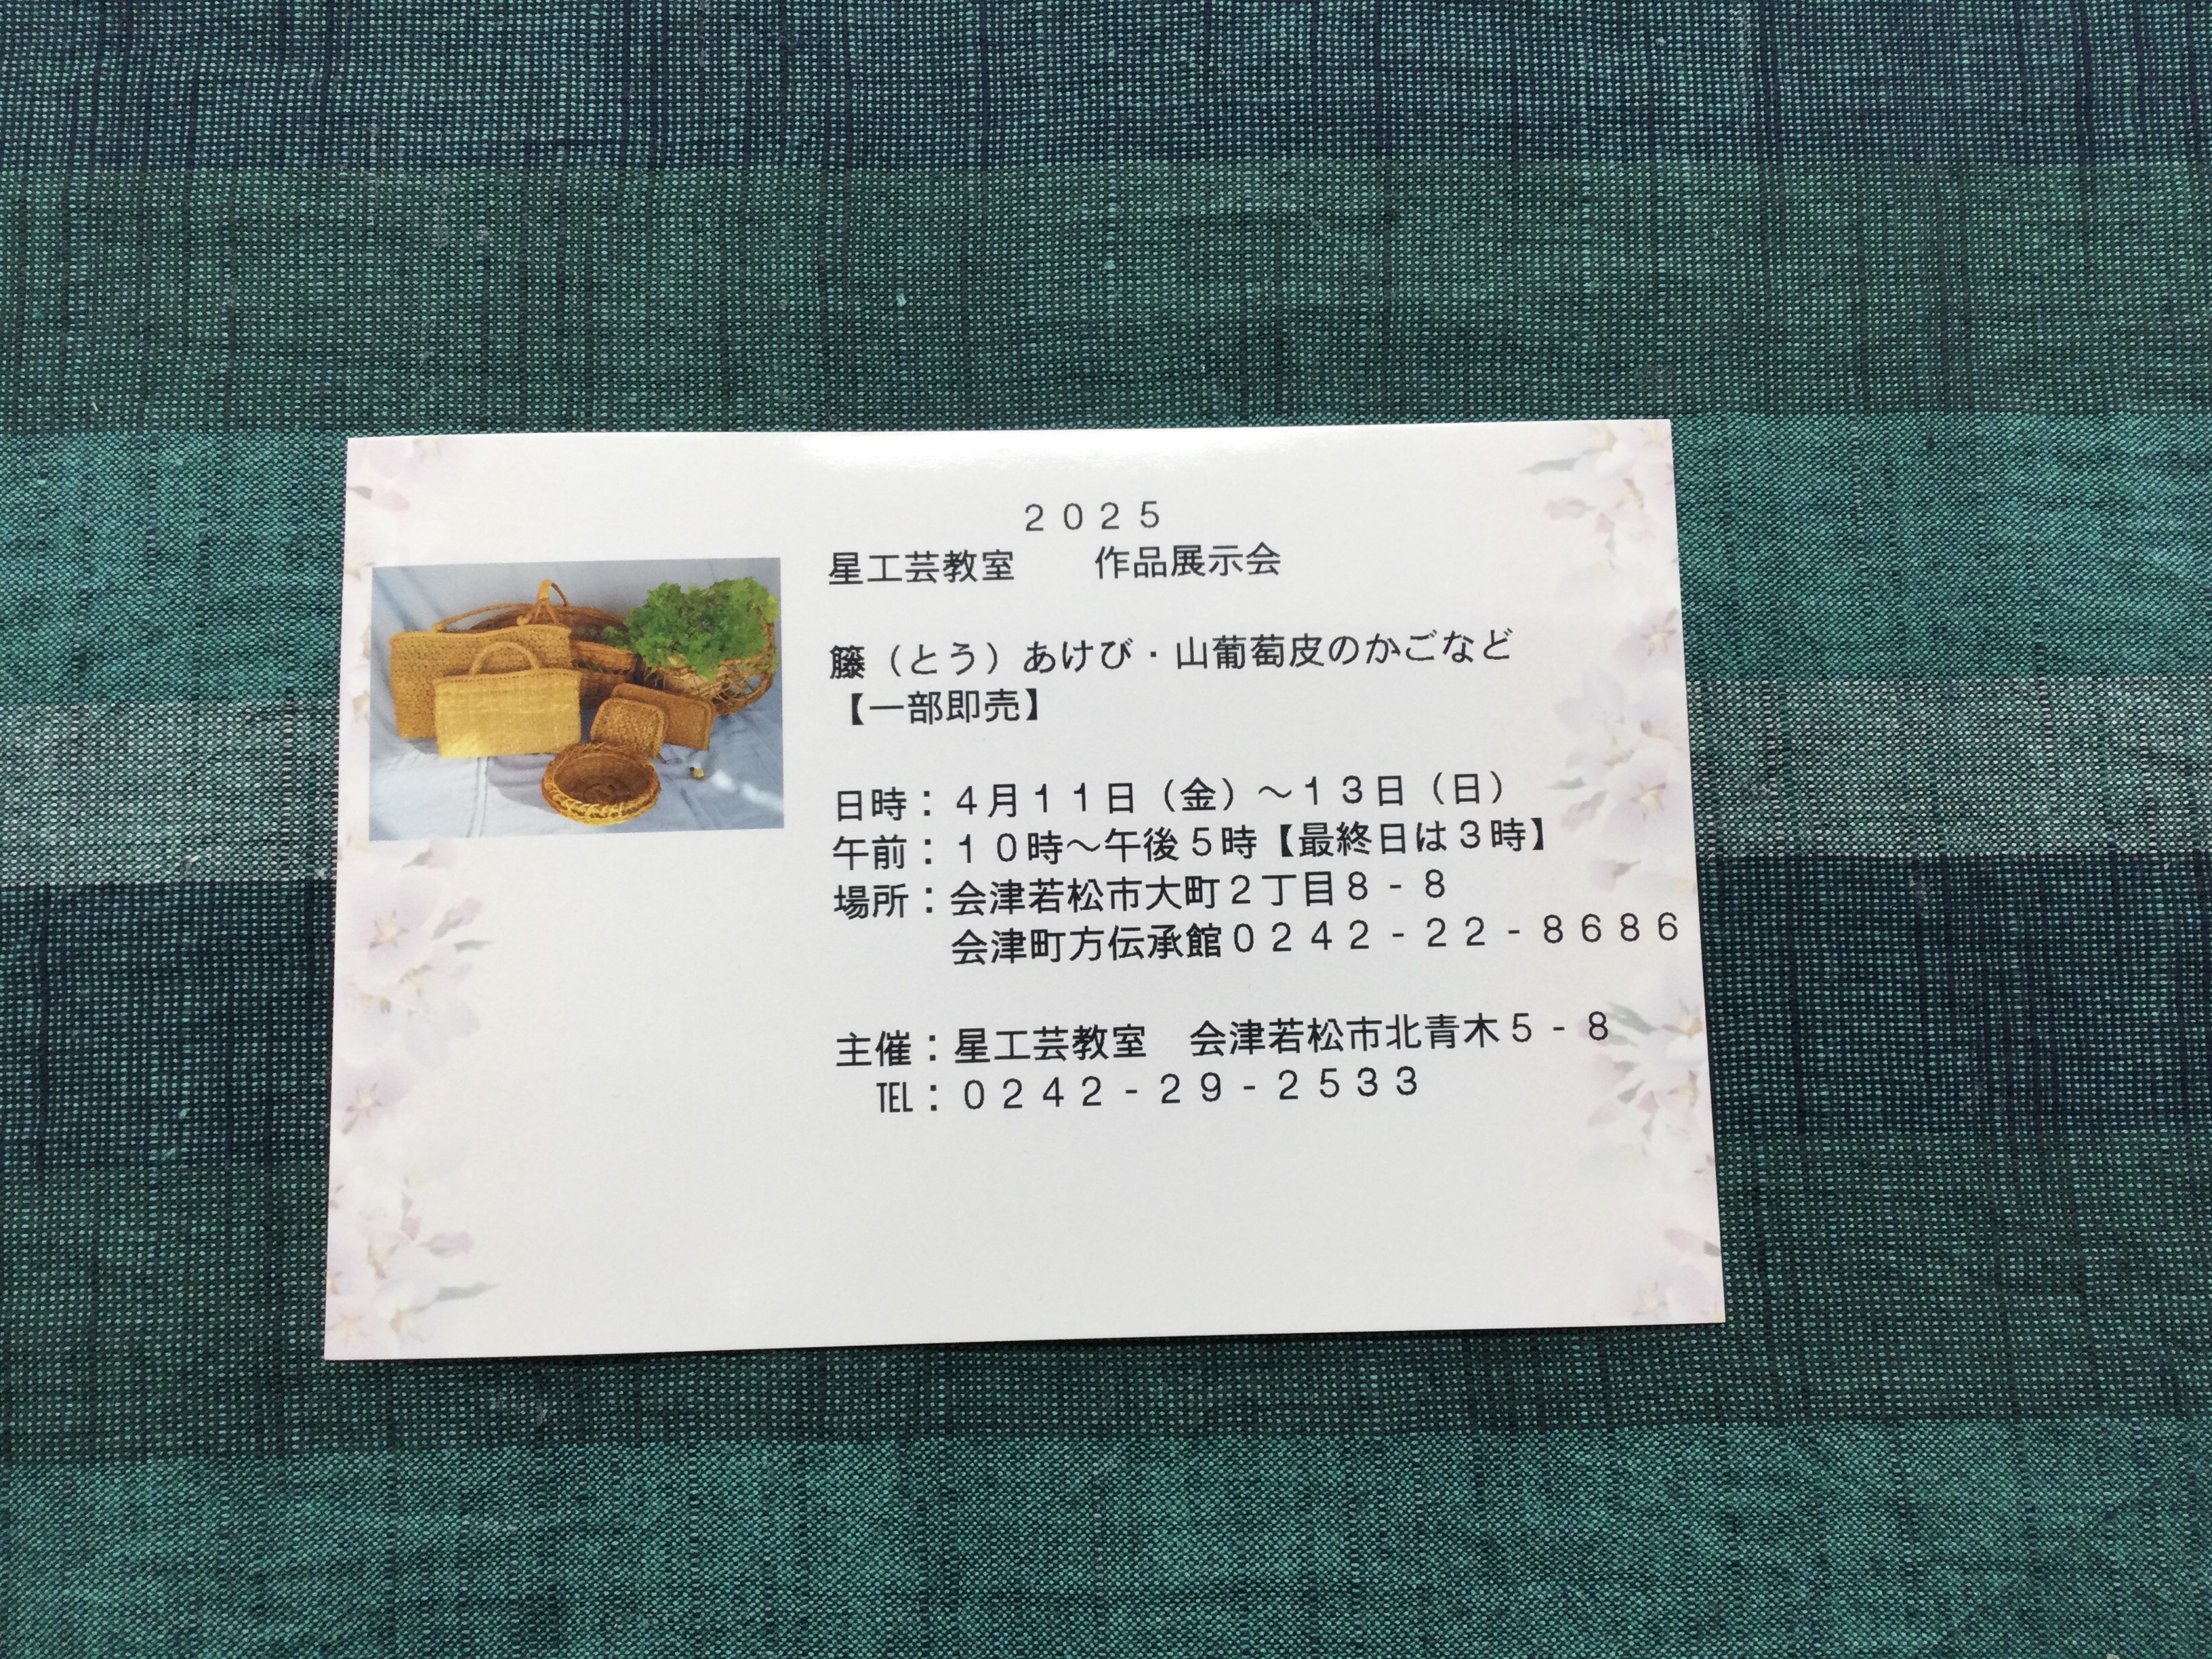 ２０２５
星工芸教室　　作品展示会
籐（とう）あけび・山葡萄皮のかごなど
【一部即売】
日時：４月１１日（金）～１３日（日）
午前：１０時～午後５時【最終日は３時】
場所：会津若松市大町２丁目８-８
会津町方伝承館０２４２-２２-８６８６
主催：星工芸教室　会津若松市北青木５-８
TEL：０２４２-２９-２５３３